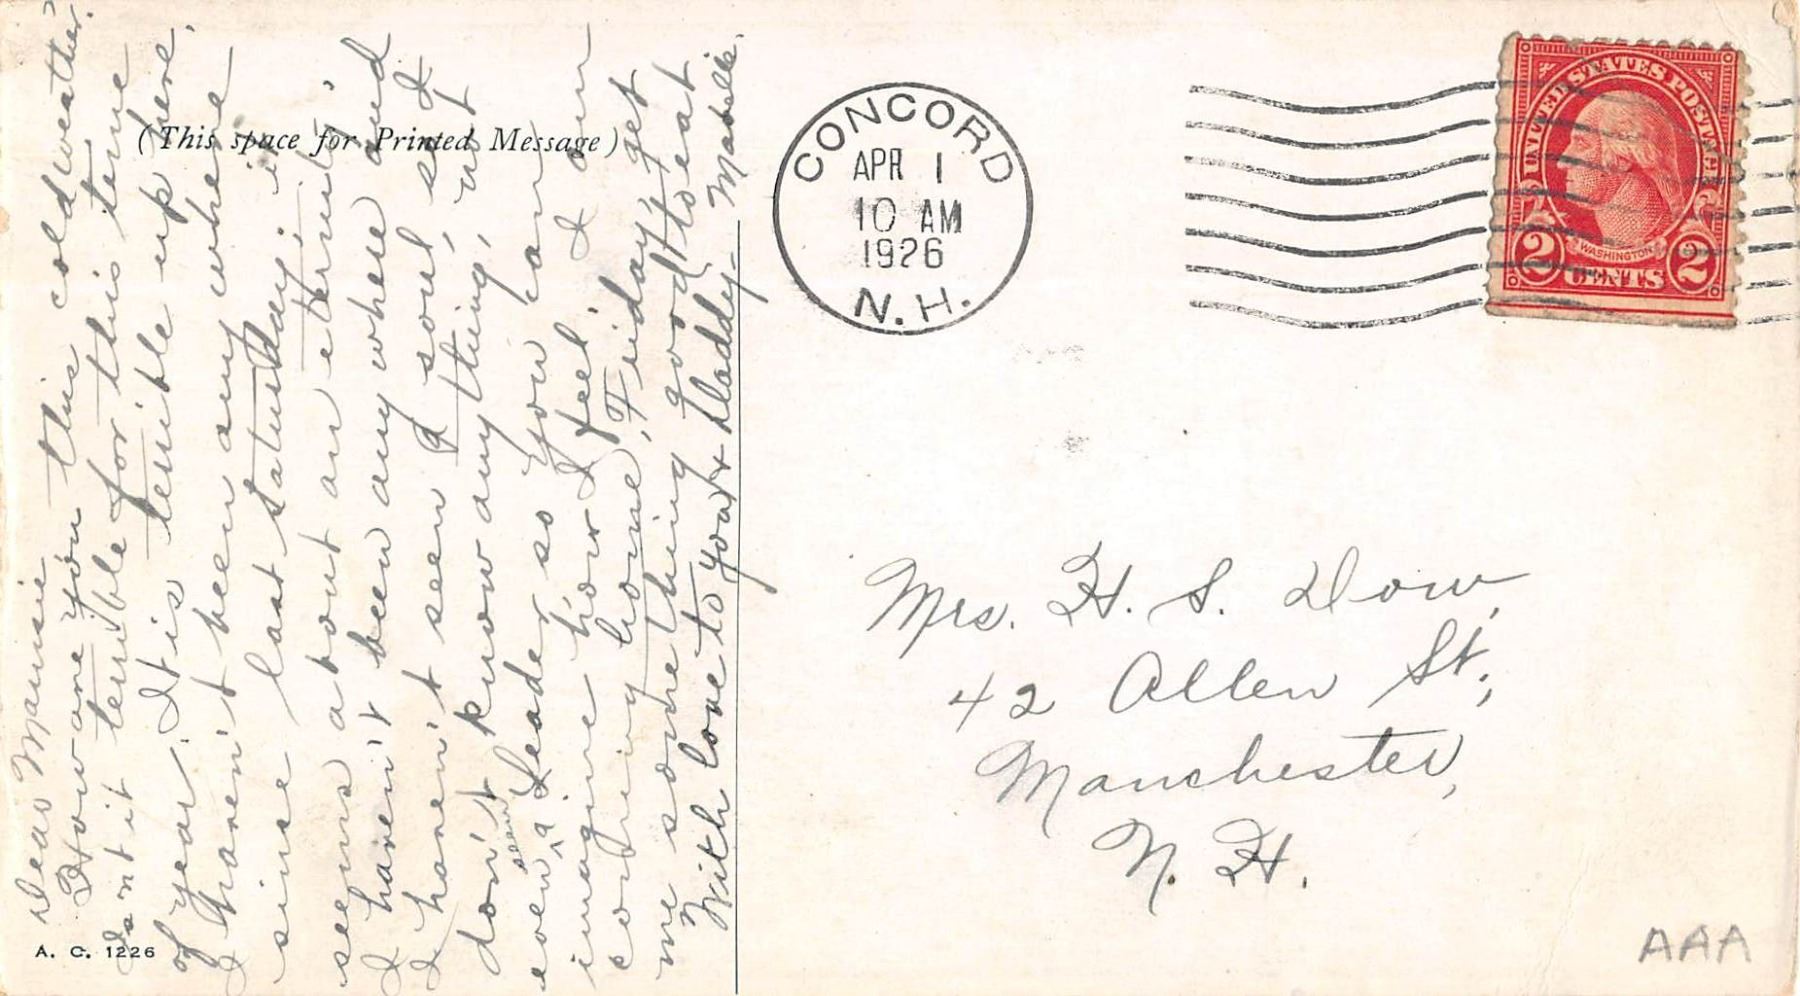 Dear Mamsie
How are you this cold weather.
Isn't it terrible for this time
of year. It is terrible up here,
I haven't been any where
since last saturday; it
seems about an eternity,
I haven't been any where and
I haven't seen a soul, so I
don't know anything, not
even seen a Leader so you can
imagine how I feel, I am
coming home, Friday, get
me something good to eat
With love to you & Daddy-
(This space for Printed Message)
A. C. 1226
CONCORD
APR 1
10 AM
1926
N.H.
UNITED STATES POSTAGE
WASHINGTON
2 CENTS 2
Mrs. H. S. Dow,
42 Allen St.,
Manchester,
N. H.
AAA